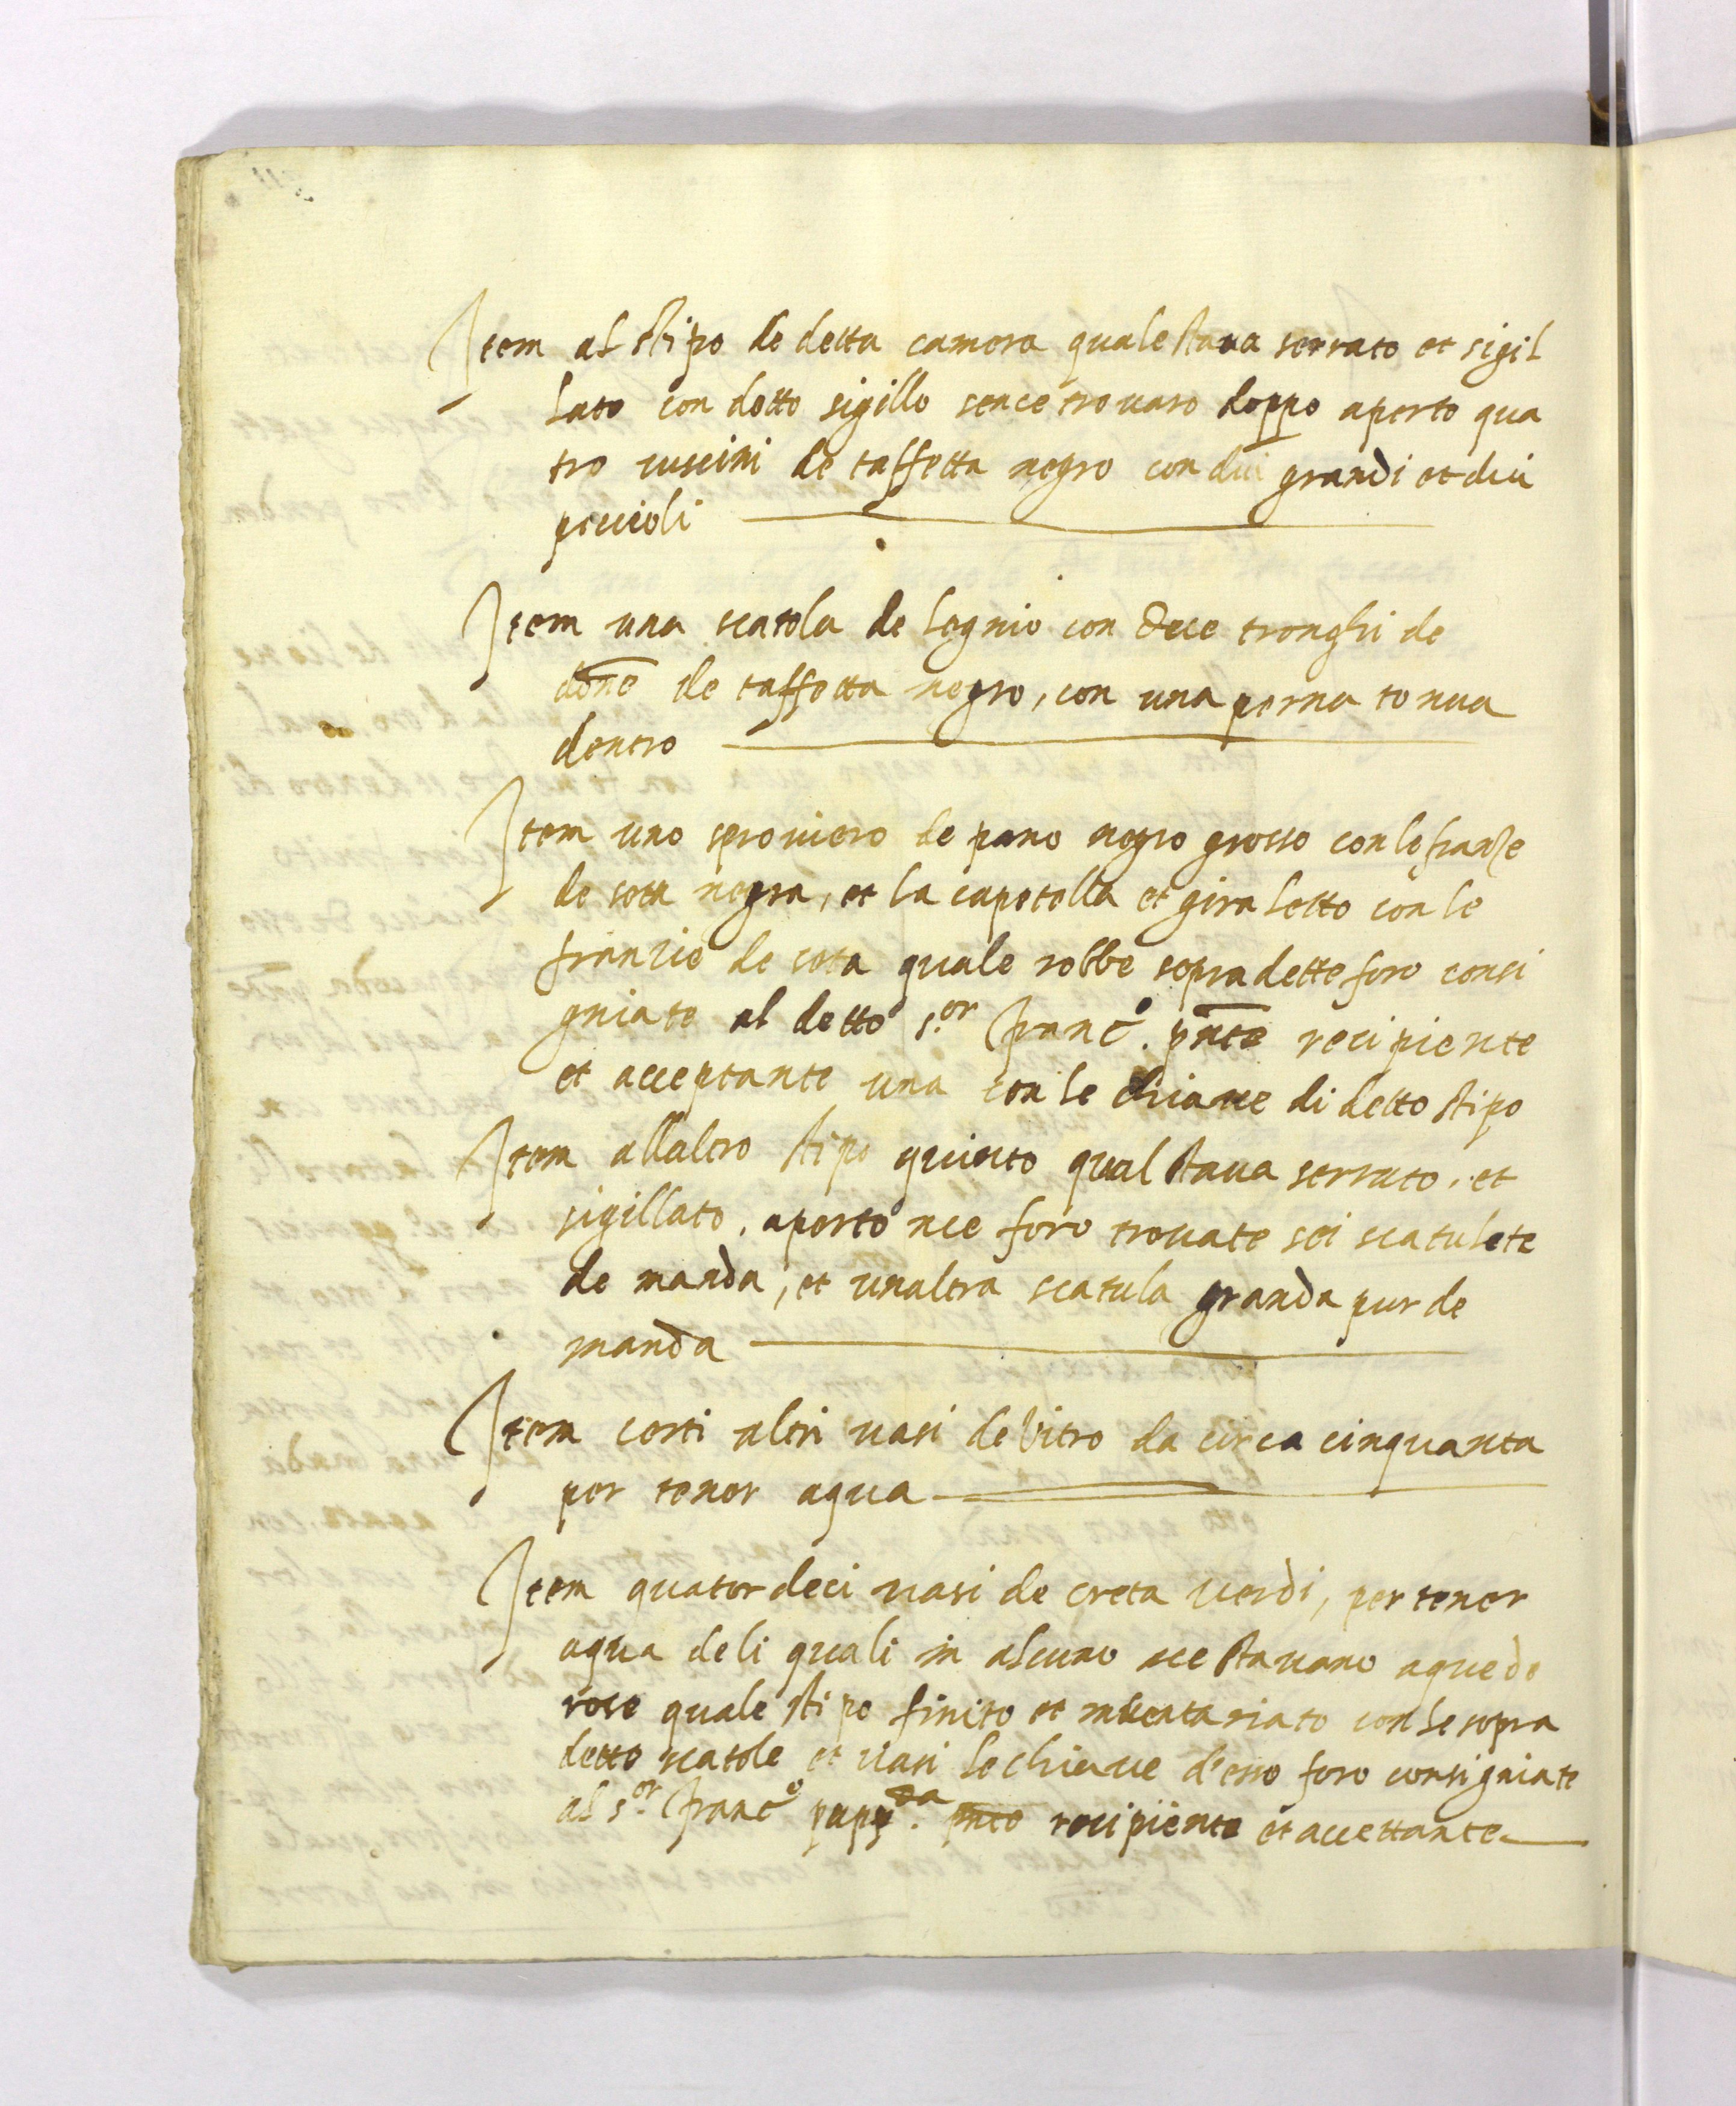 Item al stipo de detta camera quale stava serrato et sigil
lato con detto sigillo sence trovaro doppo aperto qua
tro cuscini de taffetta negro con dui grandi et dui
piccioli
Item una scatola de legnio con dece tronghi de
done de taffetta negro, con una perna tonua
dentro
Item uno sproviero de pano negro grosso con le franze
de seta negra, et la capetella et giraletto con le
franzie de seta quale robbe sopradette foro consi
gniate al detto s.or franc.o pnte recipiente
et acceptante una con le chiave di detto stipo
Item allaltro stipo quinto qual stava serrato, et
sigillato, aperto nce foro trovate sei scatulete
de manda, et unaltra scatula granda pur de
manda
Item certi altri vasi de vitro da circa cinquanta
per tener aqua
Item quatordeci vasi de creta verdi, per tener
aqua deli quali in alcuno nce stavano aque de
rose quale stipo finito et inventariato con le sopra
dette scatole et vasi le chiave d'esso foro consigniate
al s.or franc.o papp.da pnte recipiente et accettante